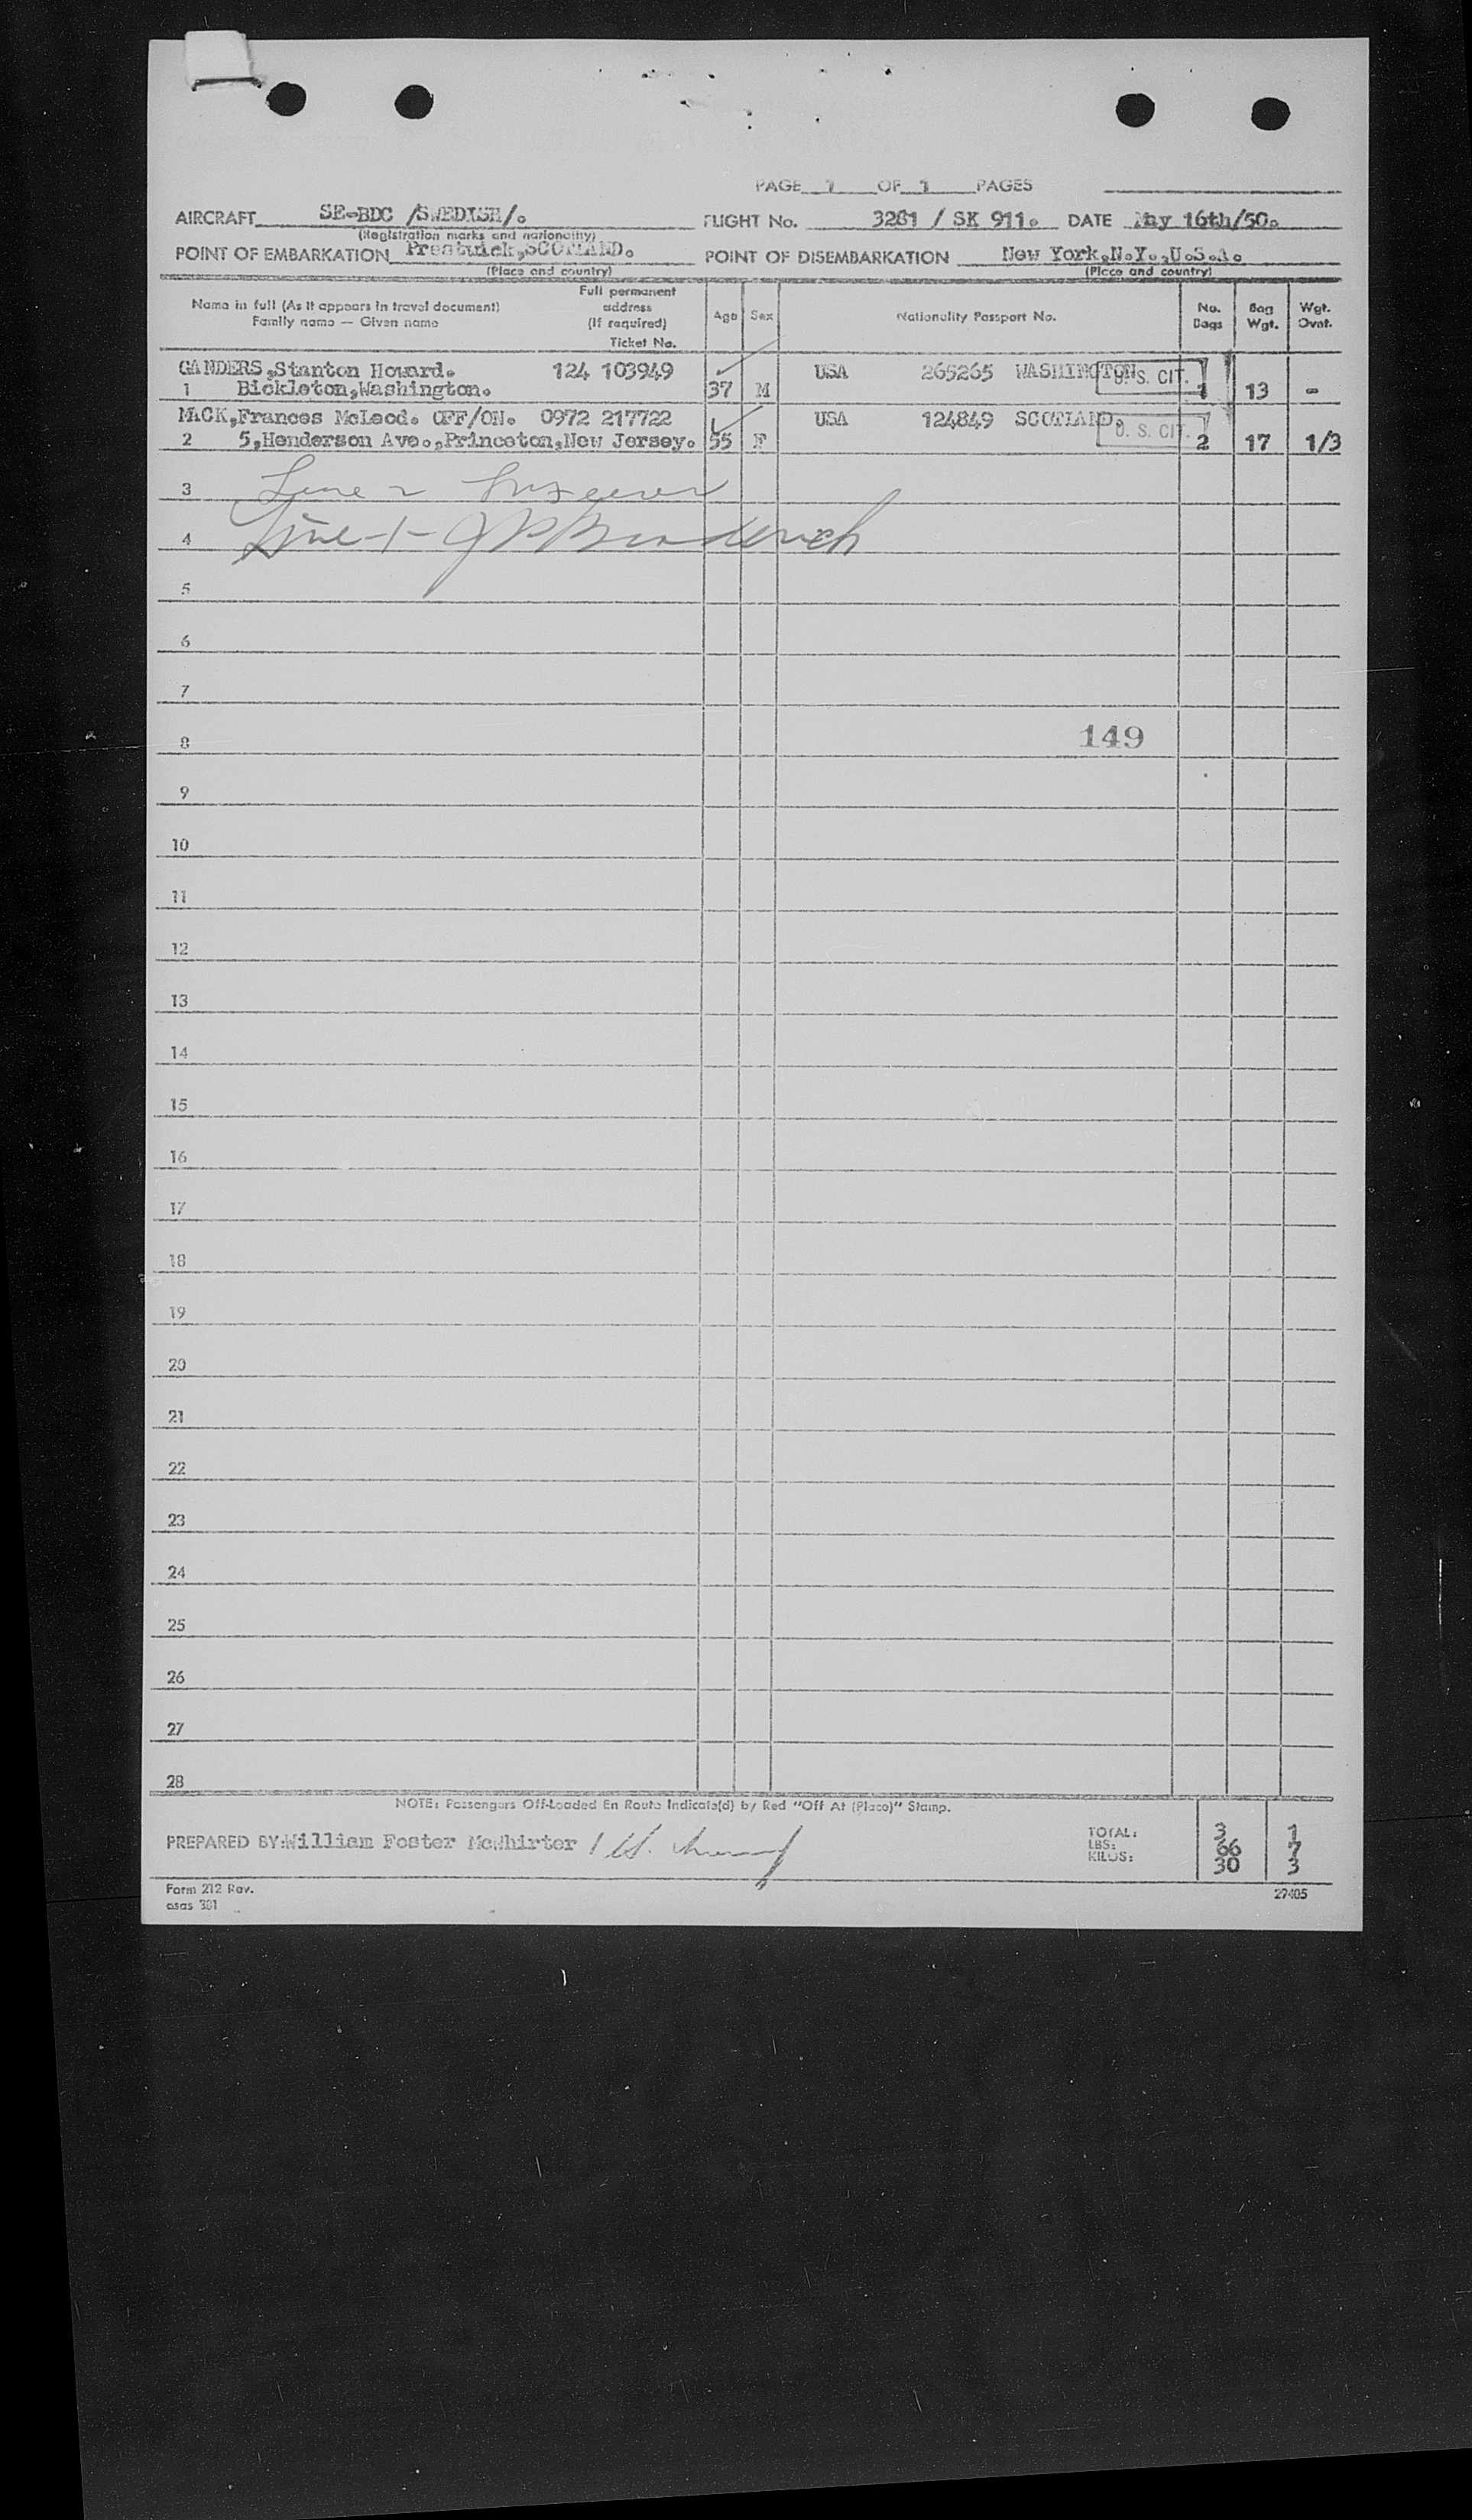 PAGE 1 OF 1 PAGES
AIRCRAFT SE-BDC /SWEDISH/. FLIGHT No. 3281 / SK 911. DATE May 16th/50.
(Registration marks and nationality)
POINT OF EMBARKATION Prestwick,SCOTLAND. POINT OF DISEMBARKATION New York,N.Y.,U.S.A.
(Place and country) (Place and country)
Name in full (As it appears in travel document) Family name — Given name Full permanent address (If required) Ticket No. Age Sex Nationality Passport No. No. Bags Bag Wgt. Wgt. Ovnt.
GANDERS,Stanton Howard. 124 103949 USA 265265 WASHINGTON U. S. CIT.
1 Bickleton,Washington. 37 M 1 13 -
MACK,Frances McLeod. OFF/ON. 0972 217722 USA 124849 SCOTLAND. U. S. CIT.
2 5,Henderson Ave.,Princeton,New Jersey. 55 F 2 17 1/3
3 Line 2
4 Line 1-
5
6
7
8 149
9
10
11
12
13
14
15
16
17
18
19
20
21
22
23
24
25
26
27
28
NOTE: Passengers Off-Loaded En Route Indicate(d) by Red "Off At (Place)" Stamp.
PREPARED BY: William Foster McWhirter /
TOTAL: 3 1
LBS: 66 7
KILOS: 30 3
Form 212 Rev. 27405
asas 301